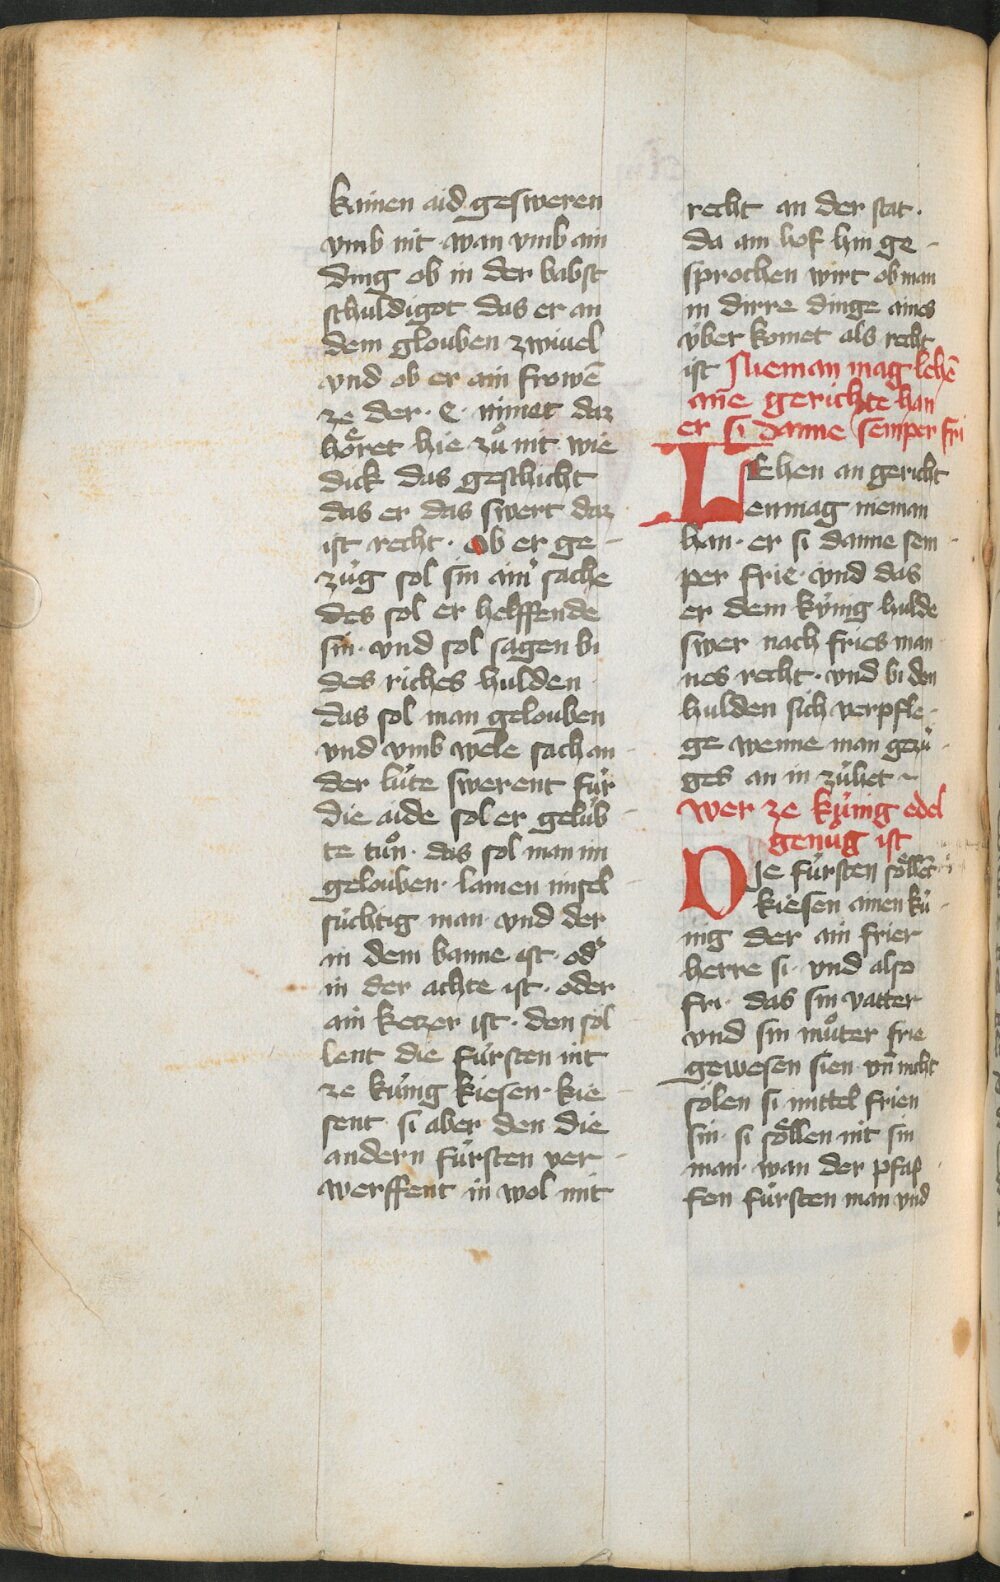 kainen aid gesweren
vmb nit · wan vmb ain
ding ob in der babst
schuldigot das er an
dem glouben zwiuel
vnd ob er ain frowē
ze der · e · nimet daz
hoͤret hie zuͦ nit wie
dick das geschicht
das er das swert daz
ist recht · Ob er ge-
zúg sol sin ain̾ sache
des sol er helffende
sin · vnd sol sagen bi
des riches hulden
das sol man gelouben
vnd vmb wele sach an-
der lúte swerent fúr
die aide sol er gelúb-
te tuͦn · das sol man im
gelouben · lamen misel
súchtig man · vnd der
in dem banne ist · od̾
in der achte ist · oder
ain ketzer ist · den sol-
lent die fúrsten nit
ze kúnig kiesen · kie-
sent si aber den die
andern fúrsten ver-
werffent in wol mit
recht an der stat ·
da ain hof hin ge-
sprochen wirt ob man
in dirre dinge aines
v́ber komet als recht
ist Nieman mag lehē
ane gerichte han
er si danne semper fri
LEhen an gericht
enmag nieman
han · er si danne sem-
per frie · vnd das
er dem kúnig hulde
swer nach fries man-
nes recht · vnd bi den
hulden sich verpfle-
ge wenne man gezú-
ges an in zúhet ~
wer ze kúnig edel
genuͦg ist
Die fúrsten soͤllen
kiesen ainen kú-
nig der ain frier
herre si · vnd also
fri · das sin vatter
vnd sin muͦter frie
gewesen sien · vn̄ nicht
sólen si mittel frien
sin · si soͤllen nit sin
man · wan der pfaf-
fen fúrsten man vnd